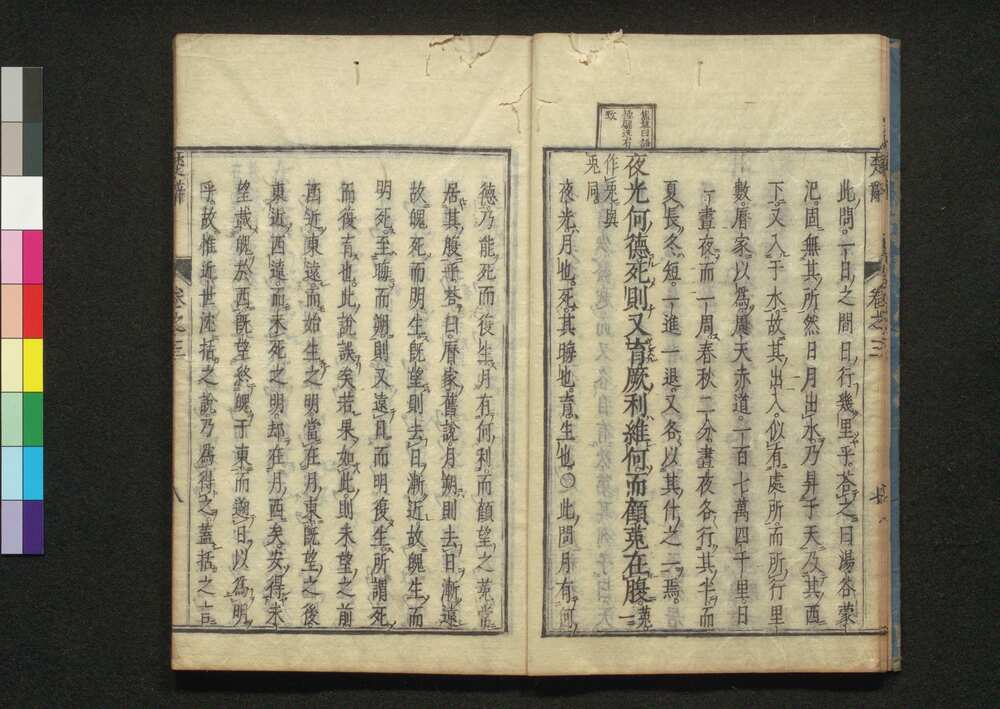 此問一日之間日行幾里乎答之曰湯谷蒙
汜固無其所然日月出水乃昇于天及其西
下又入于水故其出入似有處所而所行里
數曆家以爲周天赤道一百七萬四千里日
一晝夜而一周春秋二分晝夜各行其半而
夏長冬短一進一退又各以其什之一焉
夜光何德死則又育厥利維何而顧菟在腹菟一
作兎與
兎同
夜光月也死其晦也育生也○此問月有何
德乃能死而復生月有何利而顧望之菟常
居其腹乎答曰曆家舊說月朔則去日漸遠
故魄死而明生既望則去日漸近故魄生而
明死至晦而朔則又遠日而明復生所謂死
而復育也此說誤矣若果如此則未望之前
西近東遠而始生之明當在月東既望之後
東近西遠而未死之明却在月西矣安得未
望載魄於西既望終魄于東而遡日以爲明
乎故惟近世沈括之說乃爲得之蓋括之言
楚辭
卷之三
八